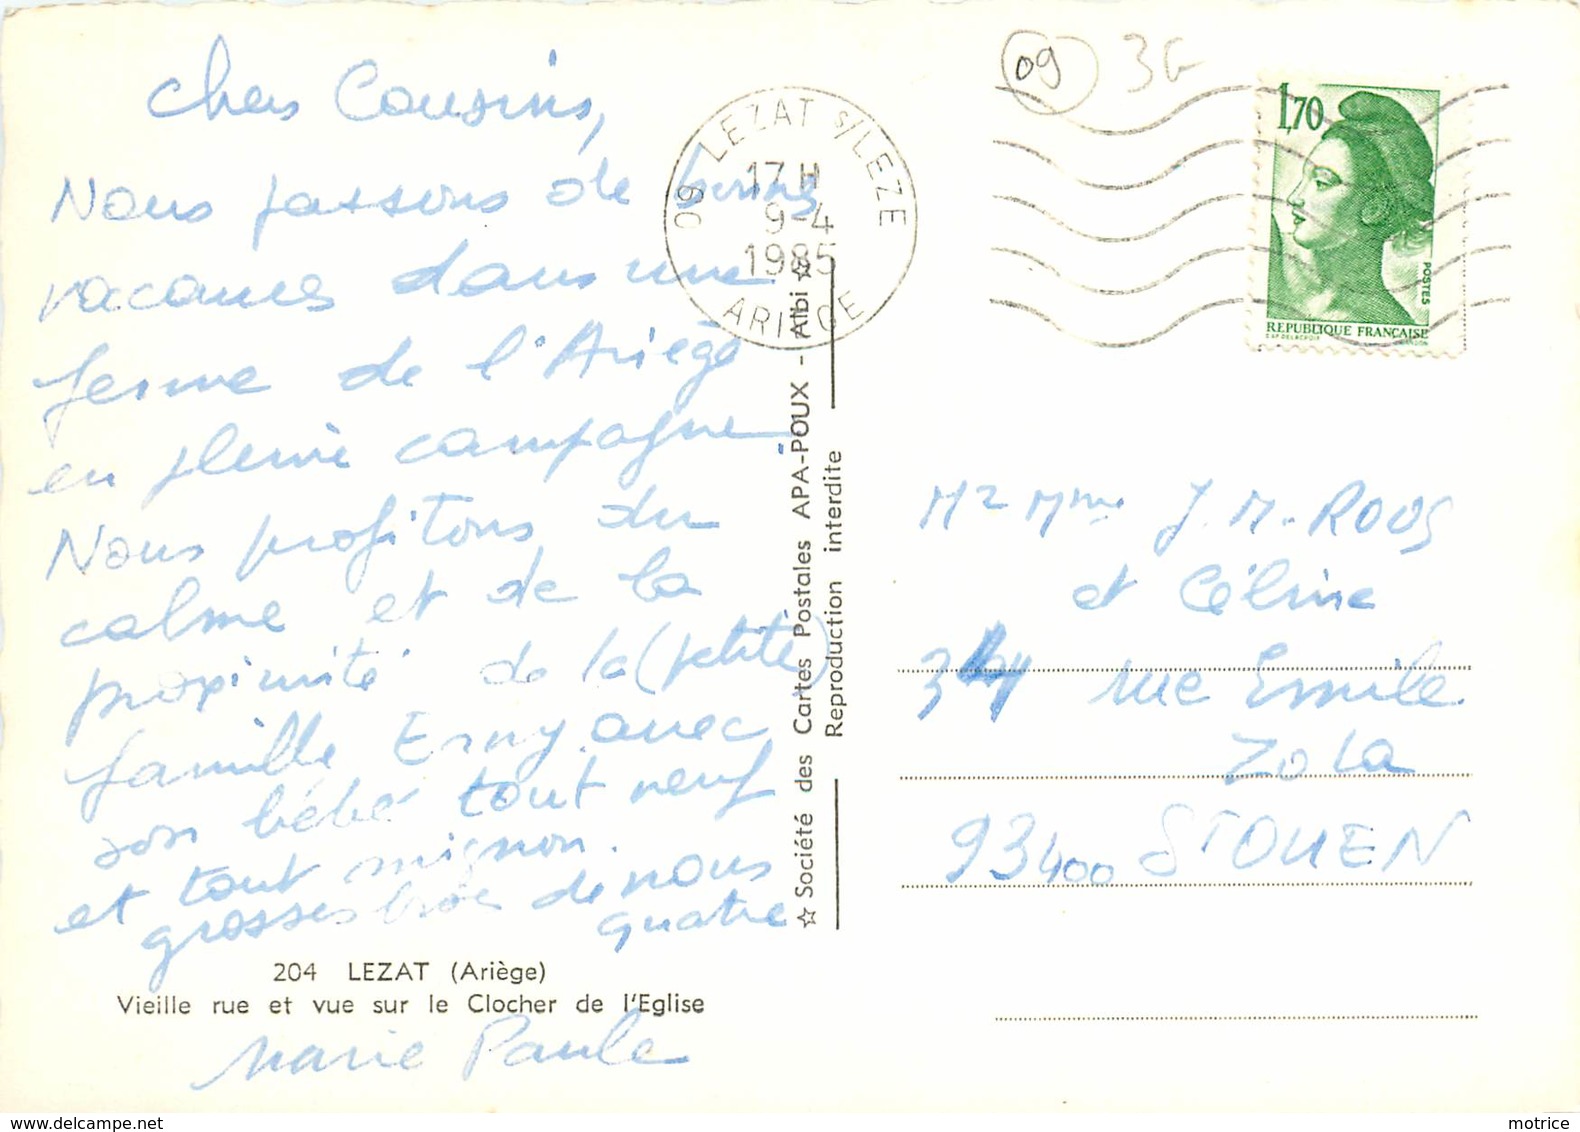 Chers Cousins,
Nous passons de bonnes
vacances dans une
ferme de l'Ariège
en pleine campagne
Nous profitons du
calme et de la
proximité de la (petite)
famille Erny avec
son bébé tout neuf
et tout mignon.
grosses bises de nous
quatre
204 LEZAT (Ariège)
Vieille rue et vue sur le Clocher de l'Eglise
Marie Paule
☆ Société des Cartes Postales APA-POUX - Albi ☆
Reproduction interdite
09 LEZAT S/LEZE
17 H
9-4
1985
ARIEGE
09 3G
1,70
POSTES
REPUBLIQUE FRANÇAISE
Mr Mme J.M. ROOS
et Céline
rue Emile
Zola
93400 ST OUEN
motrice